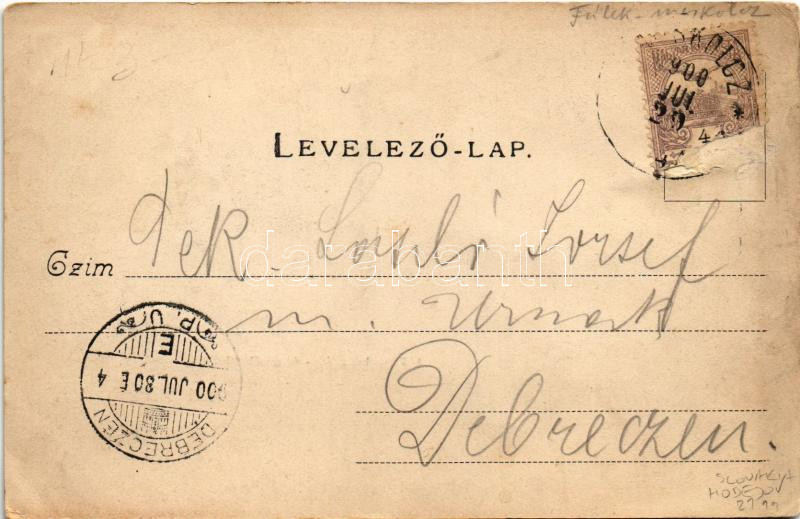 Fülek - miskolcz
SKOLCZ
900
JUL
29
4
LEVELEZŐ-LAP.
Czim Tek. László József
m. Urnak
Debreczen.
P. U.
E
900 JUL. 30 É 4
DEBRECZEN
darabanth
SLOVAKIA
HODEJOV